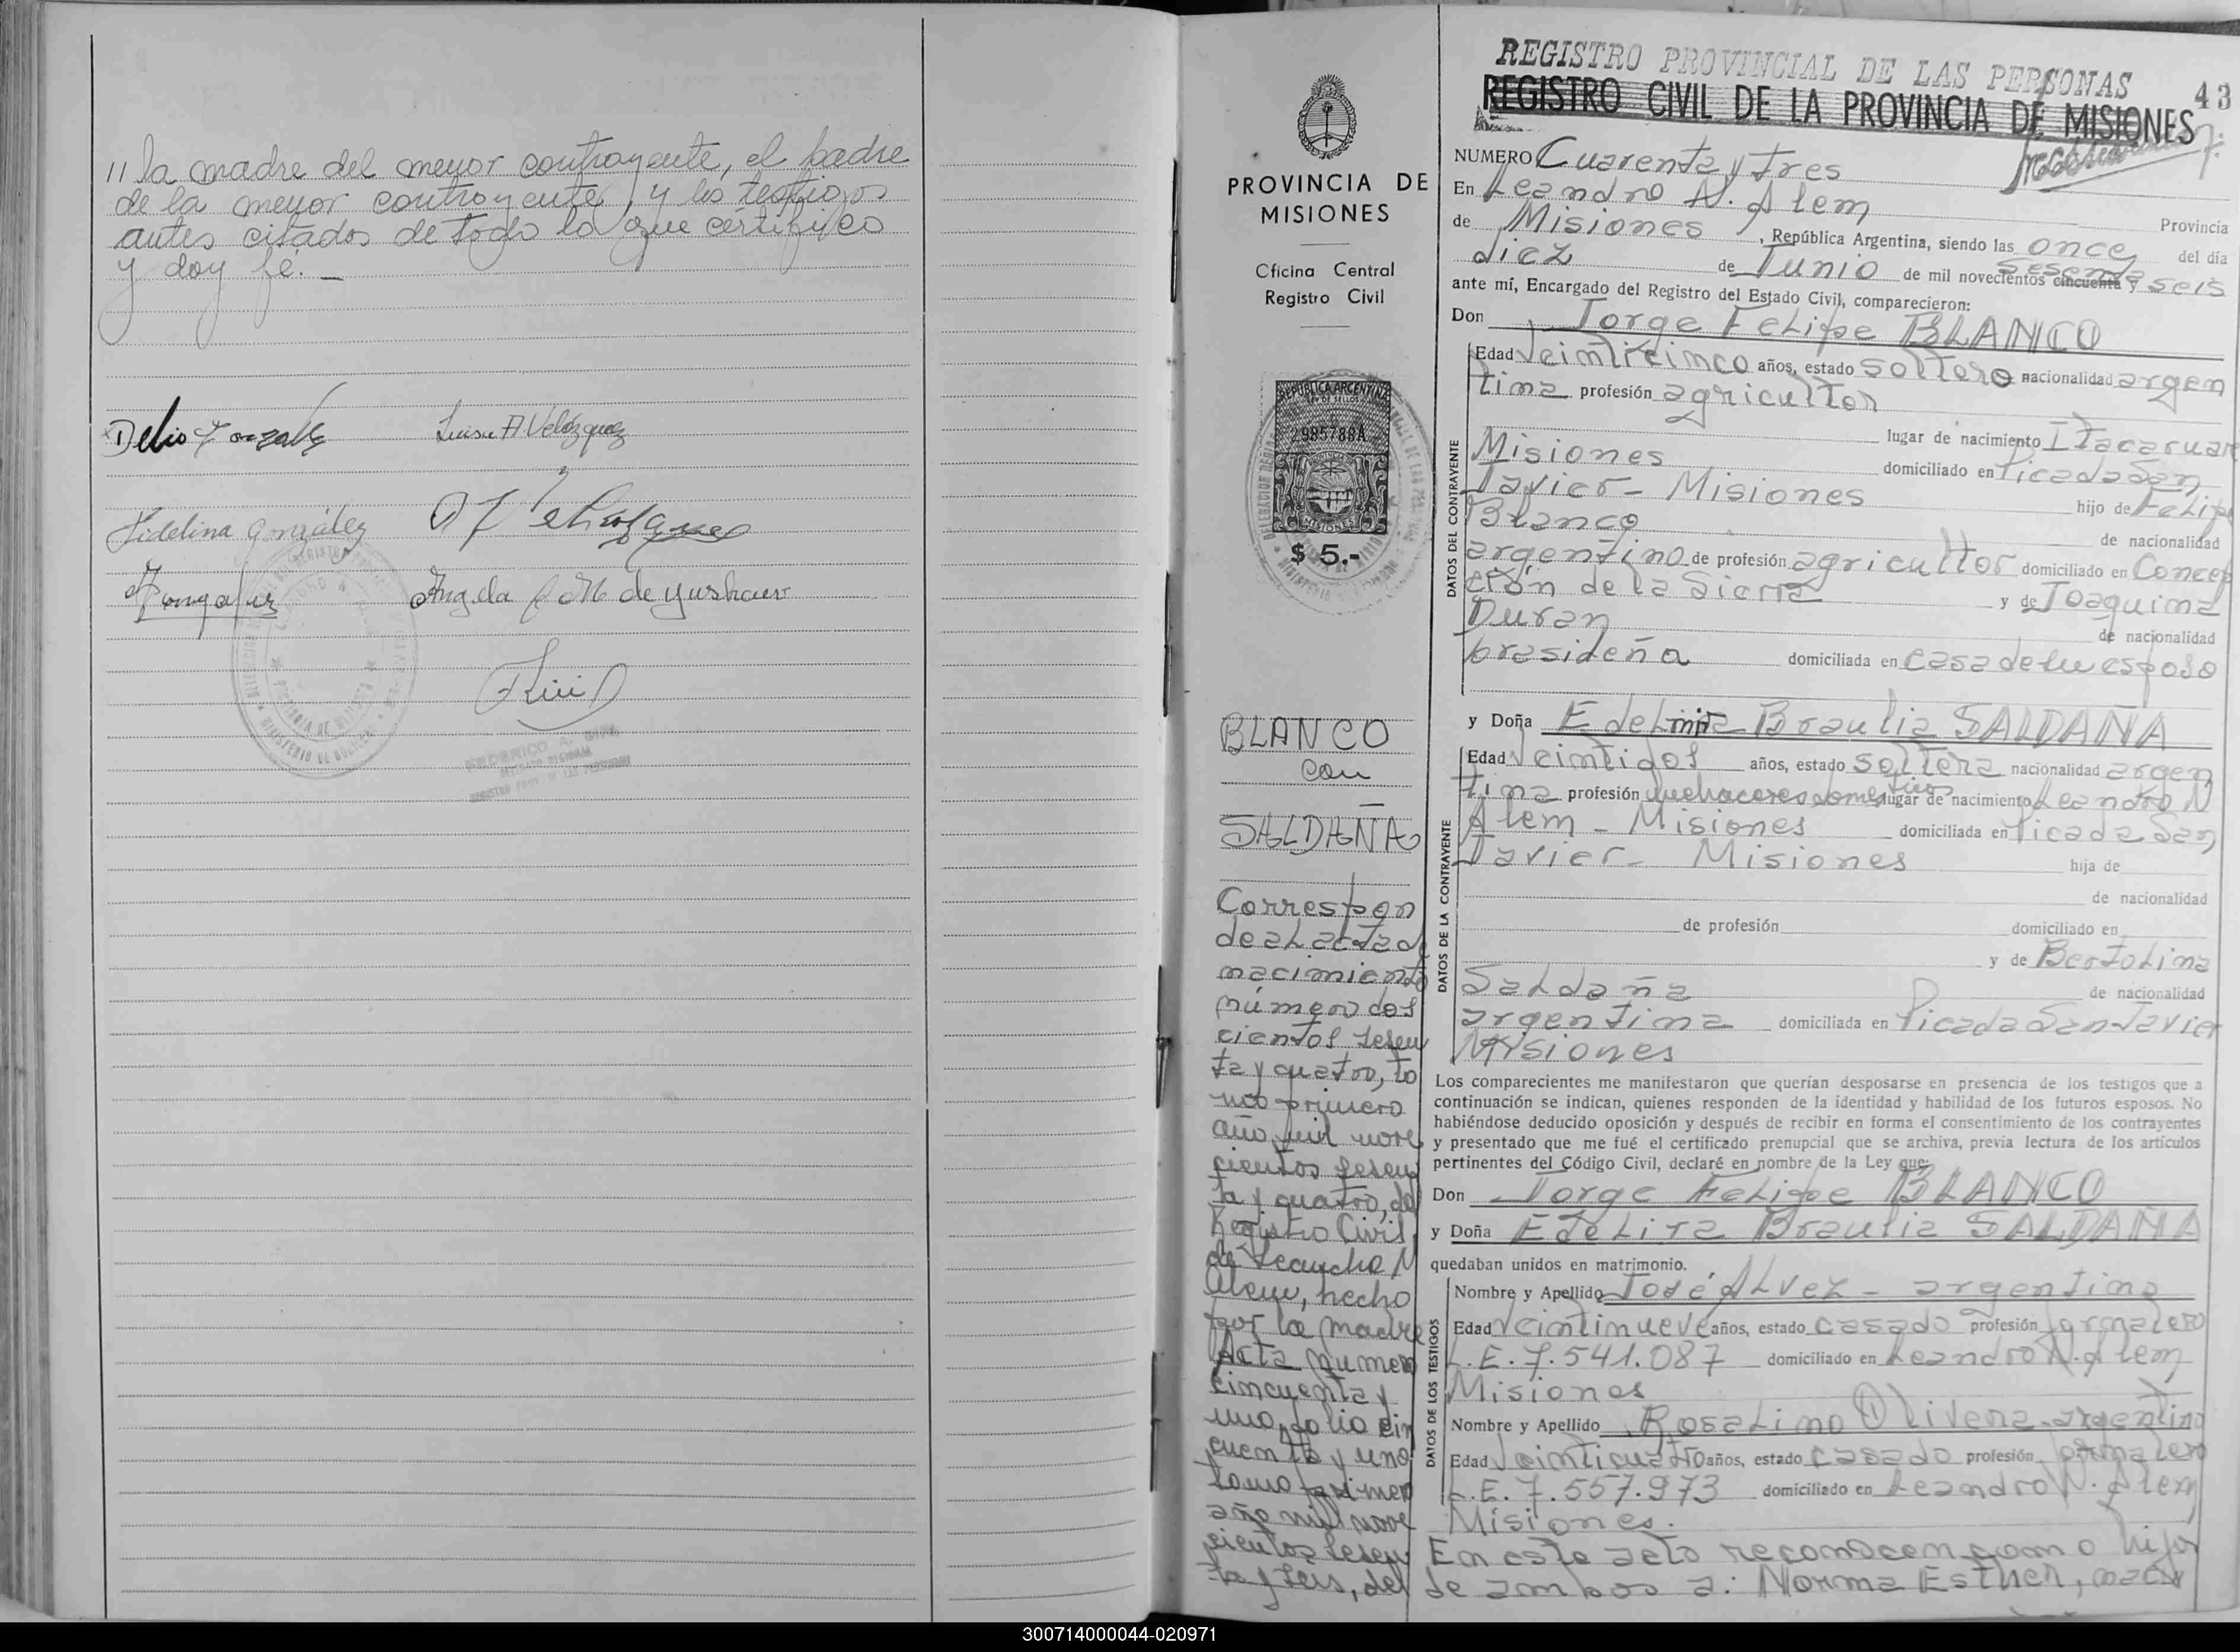 // la madre del menor contrayente, el padre
de la menor contrayente, y los testigos
antes citados de todo lo que certifico
y doy fé. _
Delio Gonzalez
Luisa A. Velázquez
Fidelina González
Angela de
PROVINCIA DE
MISIONES
Oficina Central
Registro Civil
REPUBLICA ARGENTINA
LEY DE SELLOS
2985788A
MISIONES
$ 5.-
BLANCO
con
SALDAÑA
Correspon
de al acta de
nacimiento
número dos
cientos sesen
ta y cuatro, to
mo primero
año mil nove
cientos sesen
ta y cuatro, del
Registro Civil
de Leandro N
Alem, hecho
por la madre
Acta numero
cincuenta y
uno, folio cin
cuenta y uno
tomo primero
año mil nove
cientos sesen
ta y seis, del
REGISTRO PROVINCIAL DE LAS PERSONAS
43
REGISTRO CIVIL DE LA PROVINCIA DE MISIONES
NUMERO Cuarenta y tres
En Leandro N. Alem
Provincia
de Misiones, República Argentina, siendo las once del día
diez de Junio de mil novecientos cincuenta y sesenta seis
ante mí, Encargado del Registro del Estado Civil, comparecieron:
Don Jorge Felipe BLANCO
DATOS DEL CONTRAYENTE
Edad veinticinco años, estado soltero nacionalidad argen
tina profesión agricultor
lugar de nacimiento Itacaruare
Misiones domiciliado en Picada San
Javier - Misiones hijo de Felipe
Blanco de nacionalidad
argentino de profesión agricultor domiciliado en Concep
ción de la Sierra y de Joaquina
Duran de nacionalidad
brasideña domiciliada en casa de su esposo
y Doña Edelira Braulia SALDAÑA
DATOS DE LA CONTRAYENTE
Edad veintidos años, estado soltera nacionalidad argen
tina profesión quehaceres domesticos lugar de nacimiento Leandro N
Alem - Misiones domiciliada en Picada San
Javier - Misiones hija de
de nacionalidad
de profesión domiciliado en
y de Bertolina
Saldaña de nacionalidad
argentina domiciliada en Picada San Javier
Misiones
Los comparecientes me manifestaron que querían desposarse en presencia de los testigos que a
continuación se indican, quienes responden de la identidad y habilidad de los futuros esposos. No
habiéndose deducido oposición y después de recibir en forma el consentimiento de los contrayentes
y presentado que me fué el certificado prenupcial que se archiva, previa lectura de los artículos
pertinentes del Código Civil, declaré en nombre de la Ley que:
Don Jorge Felipe BLANCO
y Doña Edelira Braulia SALDAÑA
quedaban unidos en matrimonio.
DATOS DE LOS TESTIGOS
Nombre y Apellido José Alvez - argentino
Edad veintinueve años, estado casado profesión jornalero
L.E. 7.541.087 domiciliado en Leandro N. Alem
Misiones
Nombre y Apellido Rosalino Olivera - argentino
Edad veinticuatro años, estado casado profesión jornalero
L.E. 7.557.973 domiciliado en Leandro N. Alem
Misiones.
En este acto reconocen como hijos
de ambos a: Norma Esther, naci
300714000044-020971